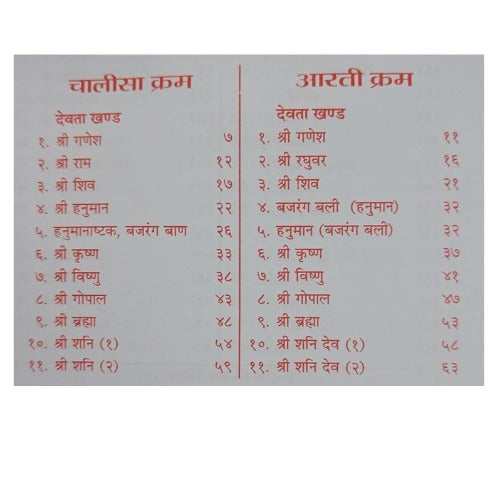 चालीसा क्रम
देवता खण्ड
१. श्री गणेश ७
२. श्री राम १२
३. श्री शिव १७
४. श्री हनुमान २२
५. हनुमानाष्टक, बजरंग बाण २६
६. श्री कृष्ण ३३
७. श्री विष्णु ३८
८. श्री गोपाल ४३
९. श्री ब्रह्मा ४८
१०. श्री शनि (१) ५४
११. श्री शनि (२) ५९
आरती क्रम
देवता खण्ड
१. श्री गणेश ११
२. श्री रघुवर १६
३. श्री शिव २१
४. बजरंग बली (हनुमान) ३२
५. हनुमान (बजरंग बली) ३२
६. श्री कृष्ण ३७
७. श्री विष्णु ४१
८. श्री गोपाल ४७
९. श्री ब्रह्मा ५३
१०. श्री शनि देव (१) ५८
११. श्री शनि देव (२) ६३